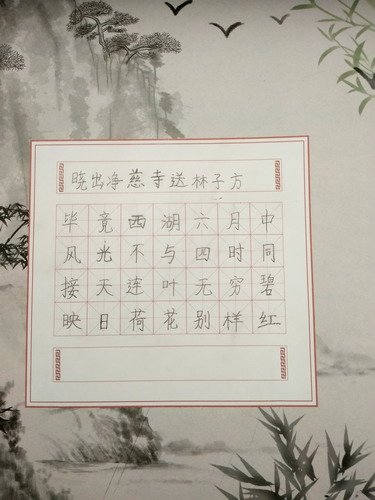 晓出净慈寺送林子方
毕竟西湖六月中
风光不与四时同
接天连叶无穷碧
映日荷花别样红